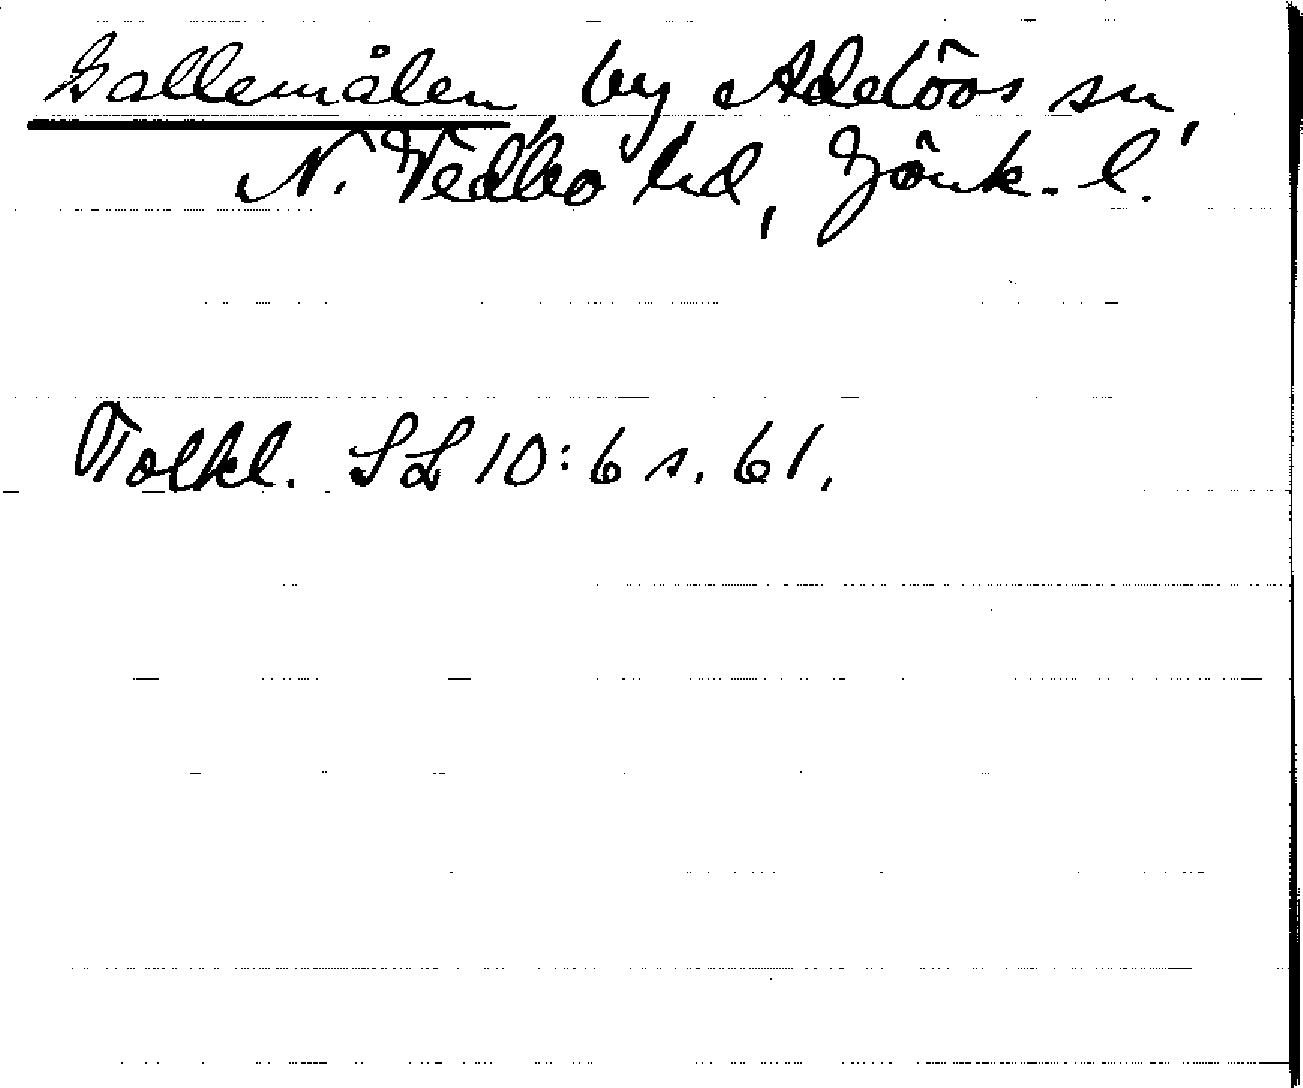 Gallemålen by Adelövs sn
N. Vedbo hd, Jönk. l.
Tolkl. SL 10:6 s. 61.